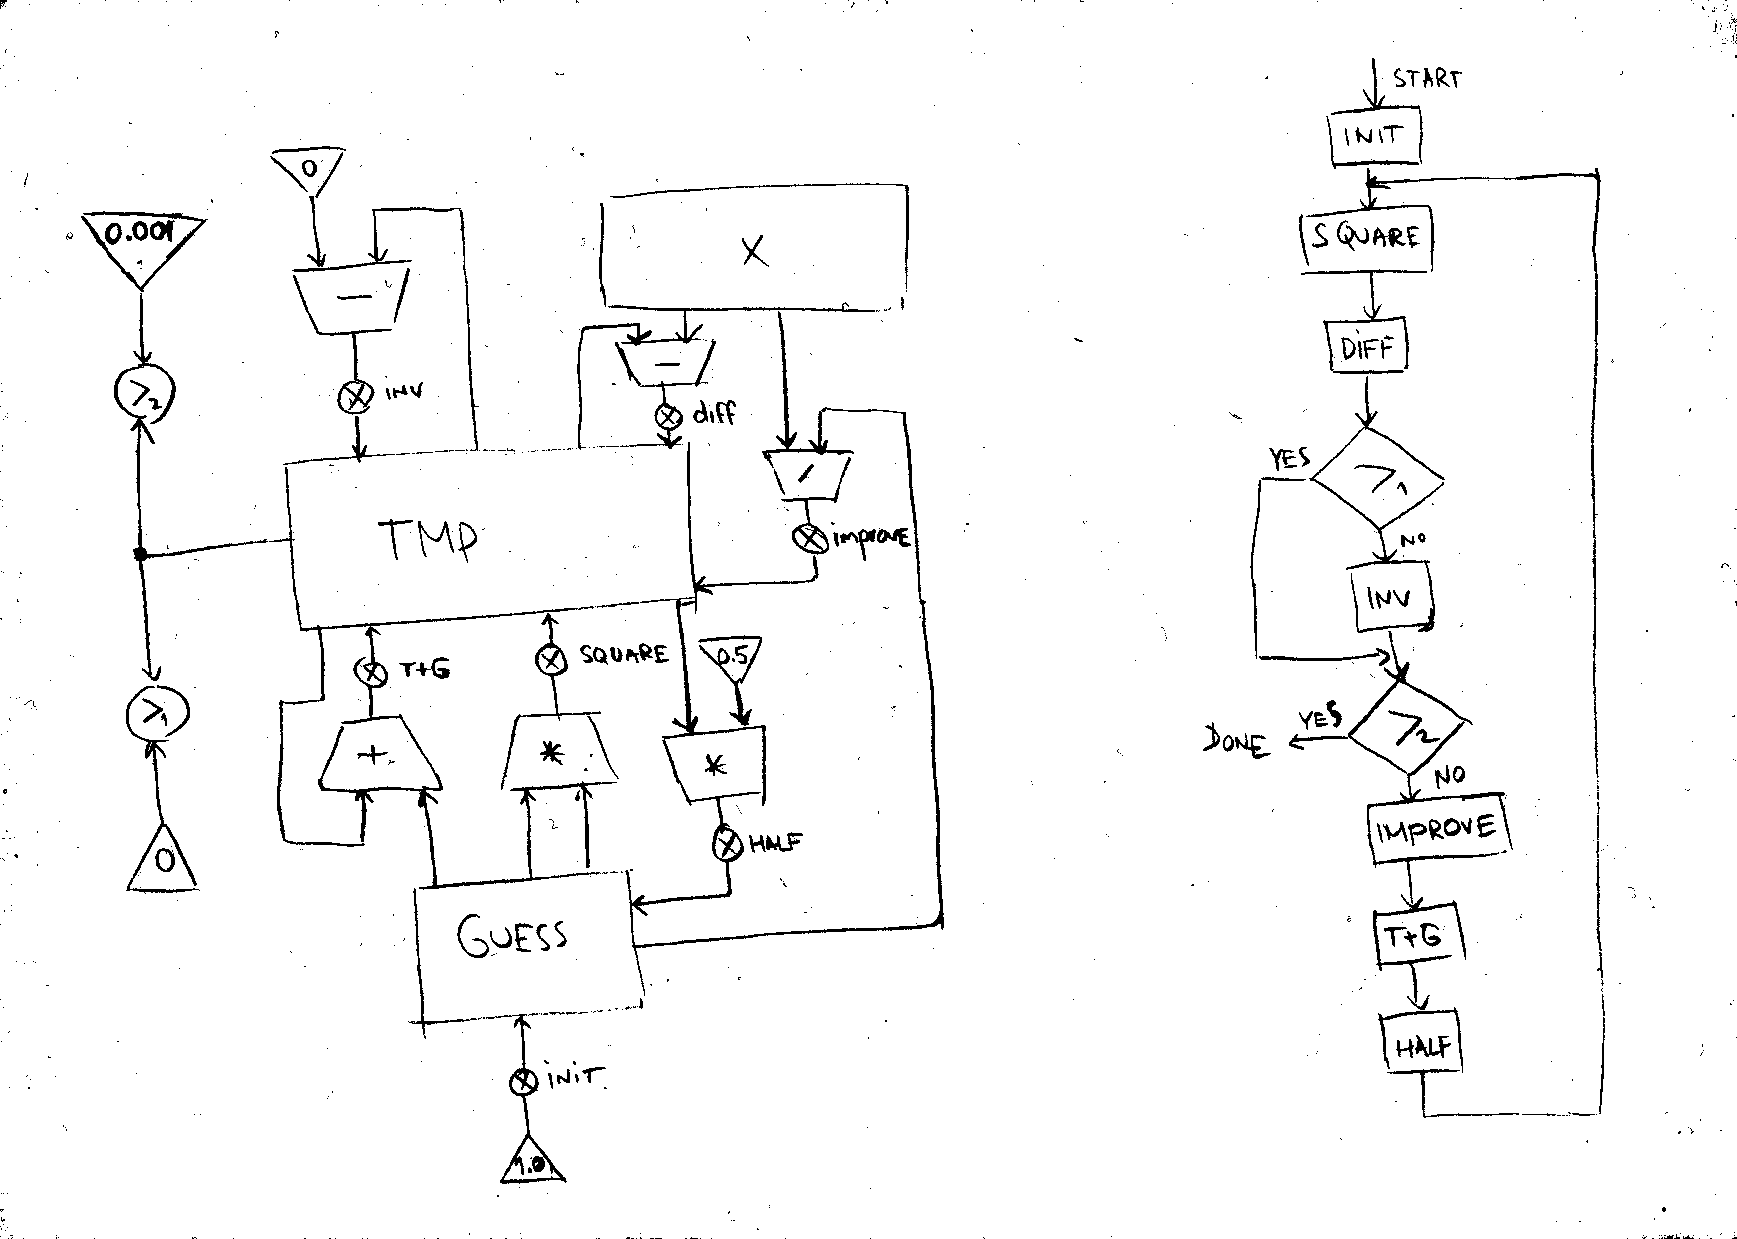 0
0.001
—
X
>2
INV
—
diff
/
improve
TMP
T+G
SQUARE
0.5
>1
+
*
*
0
HALF
GUESS
INIT.
1.0
START
INIT
SQUARE
DIFF
YES
>1
NO
INV
DONE
YES
>2
NO
IMPROVE
T+G
HALF